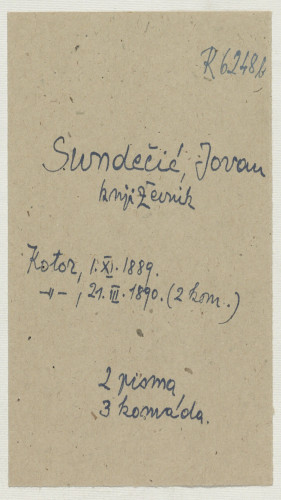 R 6248b
Sundečić, Jovan
književnik
Kotor, 1. XI. 1889.
-"- , 21. III. 1890. (2 kom.)
2 pisma
3 komada.